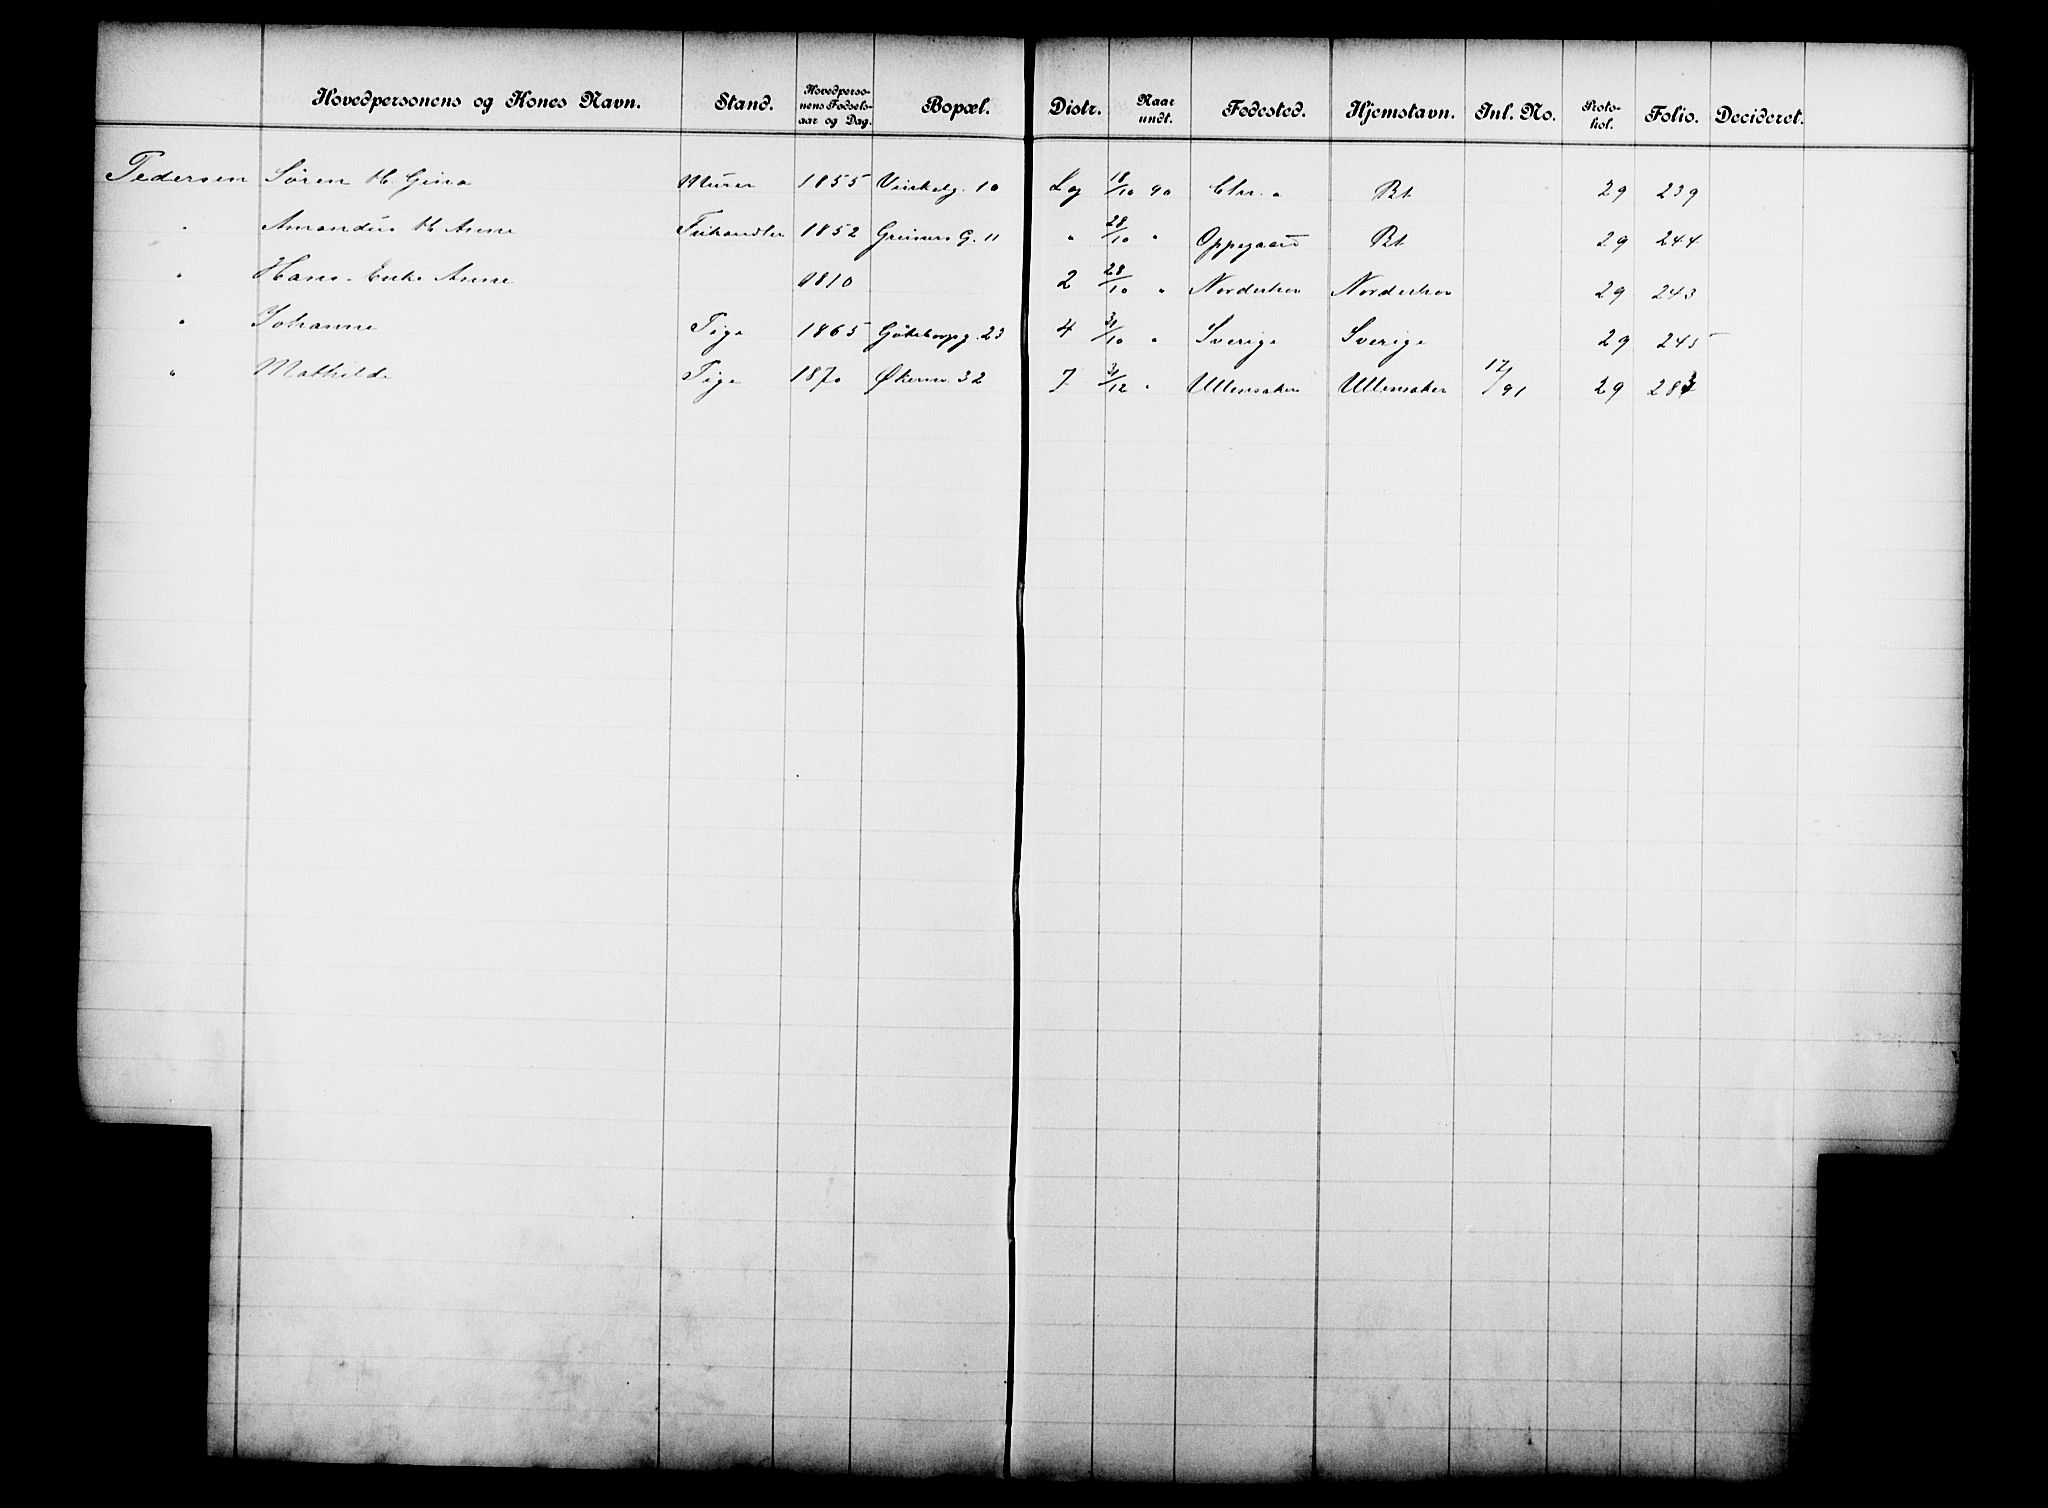 Hovedpersonens og Kones Navn. Stand. Hovedpersonens Fødselsaar og Dag. Bopæl. Distr. Naar undt. Fødested. Hjemstavn. Inl. No. Protokol. Folio. Decideret.
Pedersen Søren H. Gina Murer 1855 Vinkelg. 10 Log 18/10 90 Chr.a Bt 29 239
" Amandus H. Anne Fishandler 1852 Grüners G. 11 " 28/10 " Oppegaard Bt 29 244
" Hans. Enke Anne 1810 2 28/10 " Norderhov Norderhov 29 243
" Johanne Pige 1865 Göteborgg. 23 4 31/10 " Sverige Sverige 29 245
" Mathilde Pige 1870 Økernv. 32 7 31/12 " Ullensaker Ullensaker 17/91 29